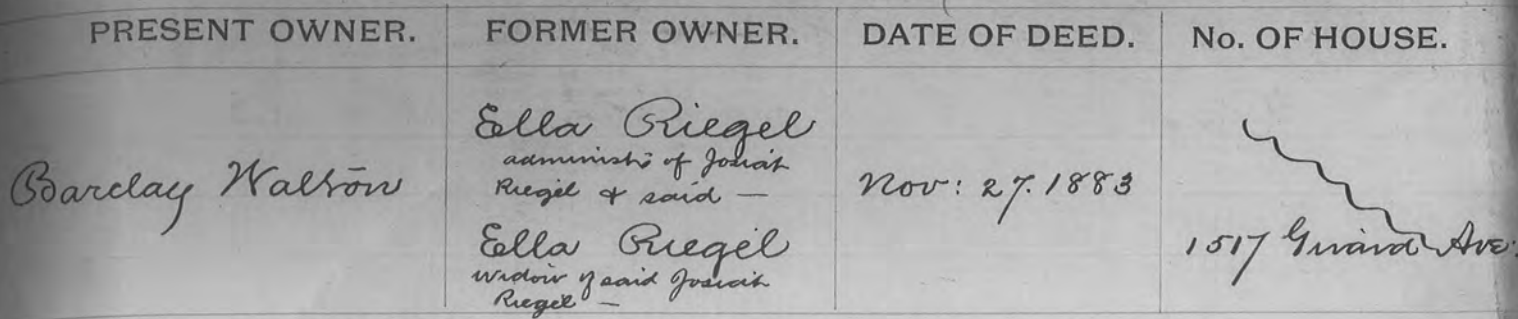 PRESENT OWNER. FORMER OWNER. DATE OF DEED. No. OF HOUSE.
Barclay Walton
Ella Riegel
administx of Josiah
Riegel & said —
Ella Riegel
widow of said Josiah
Riegel —
Nov: 27. 1883
1517 Girard Ave.